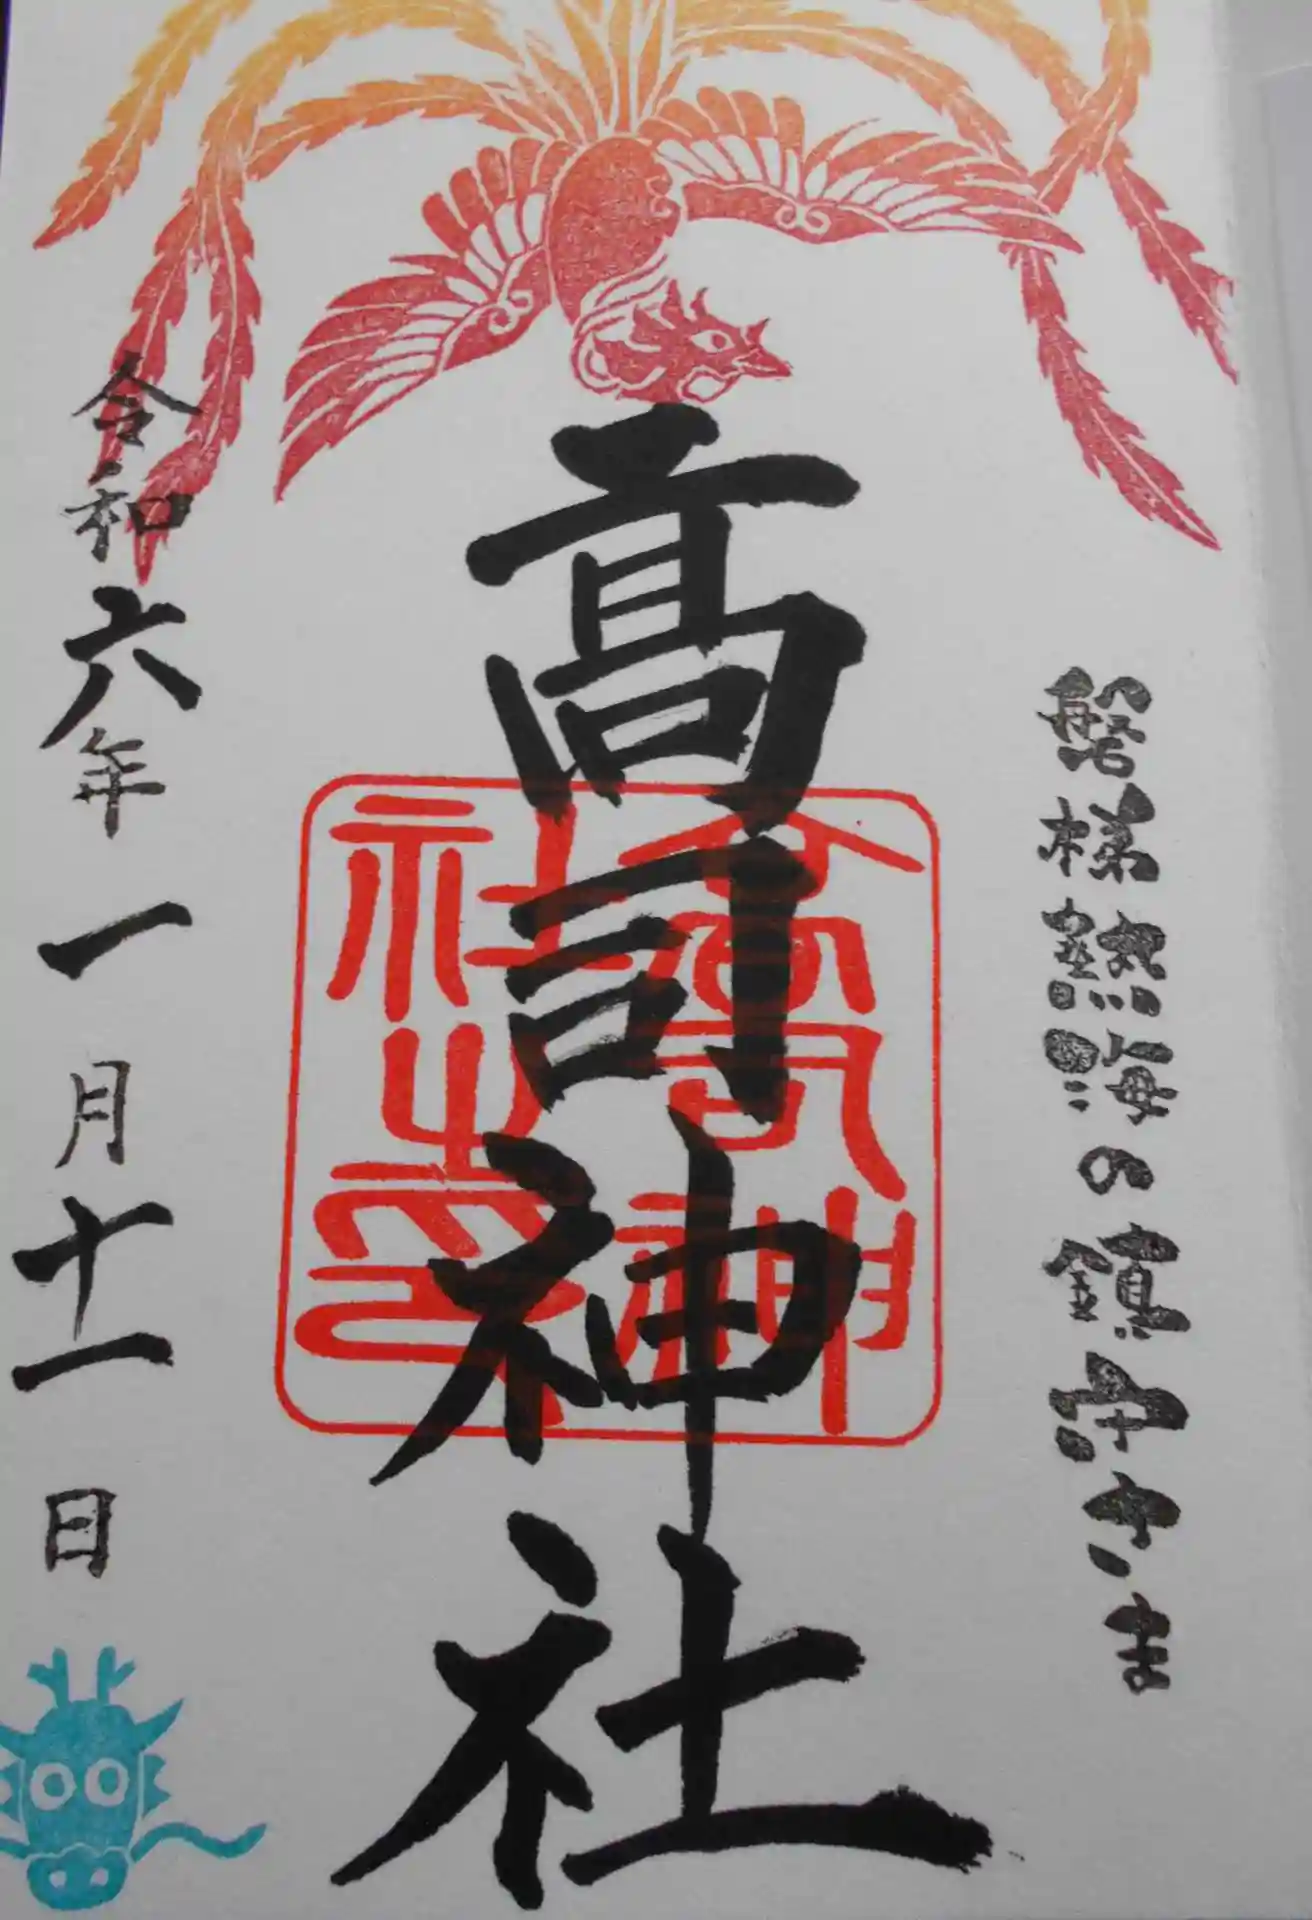 磐梯熱海の鎮守さま
高司神社
高司神社之印
令和六年一月十一日